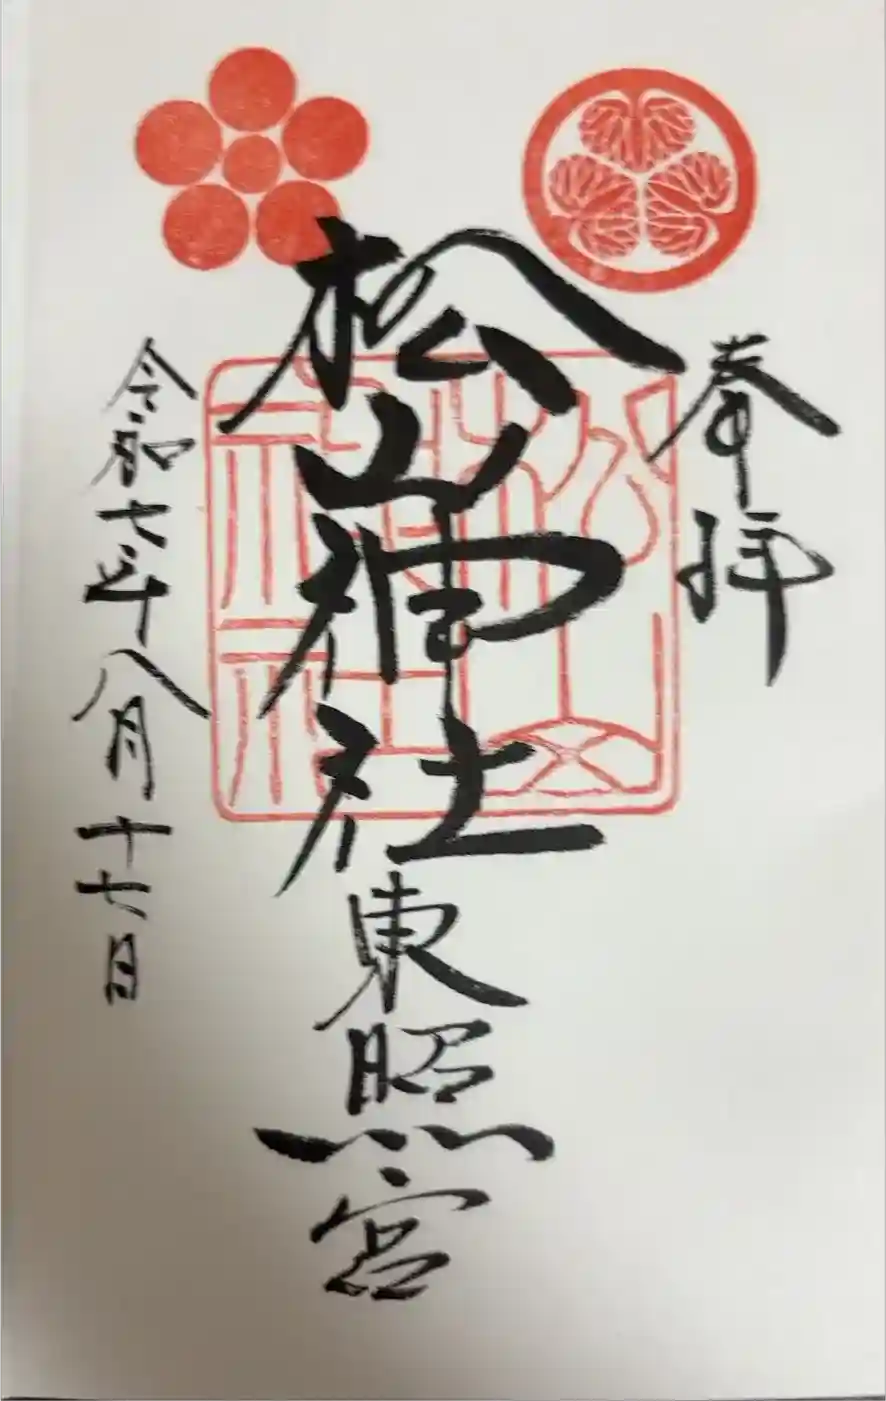 奉拝
松山神社
東照宮
令和七年八月十七日